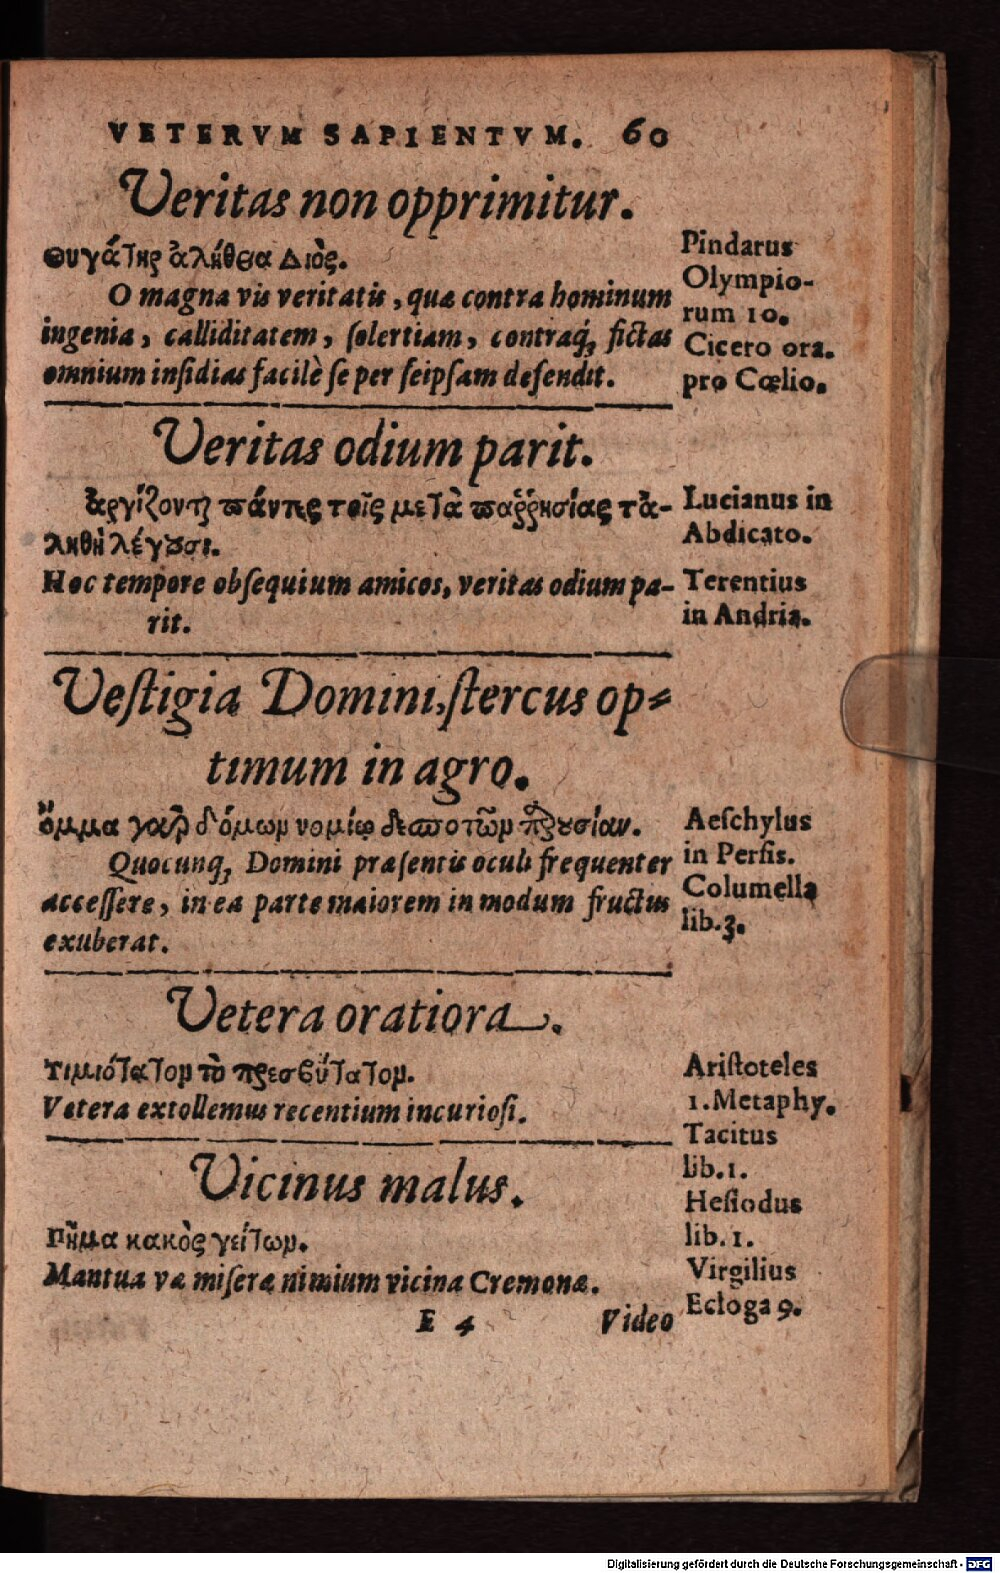 VETERVM SAPIENTVM. 60
Veritas non opprimitur.
Θυγάτηρ ἀλήθεα Διὸς.
Pindarus
Olympio-
rum 10.
O magna vis veritatis, quæ contra hominum
ingenia, calliditatem, ſolertiam, contraq́; fictas
omnium inſidias facilè ſe per ſeipſam defendit.
Cicero ora.
pro Cœlio.
Veritas odium parit.
ὀργίζονται πάντες τοῖς μετὰ παῤῥησίας τἀ-
ληθῆ λέγουσι.
Lucianus in
Abdicato.
Hoc tempore obſequium amicos, veritas odium pa-
rit.
Terentius
in Andria.
Veſtigia Domini, ſtercus op-
timum in agro.
ὄμμα γαρ δόμων νομίζω δεσποτῶν παρουσίαν.
Aeſchylus
in Perſis.
Quocunq; Domini præſentis oculi frequenter
acceſſere, in ea parte maiorem in modum fructus
exuberat.
Columella
lib.3.
Vetera oratiora.
τιμιότατον τὸ πρεσβύτατον.
Aristoteles
1.Metaphy.
Vetera extollemus recentium incurioſi.
Tacitus
lib.1.
Vicinus malus.
πῆμα κακὸς γείτων.
Heſiodus
lib.1.
Mantua væ miſeræ nimium vicina Cremonæ.
Virgilius
Ecloga 9.
E 4 Video
Digitalisierung gefördert durch die Deutsche Forschungsgemeinschaft - DFG